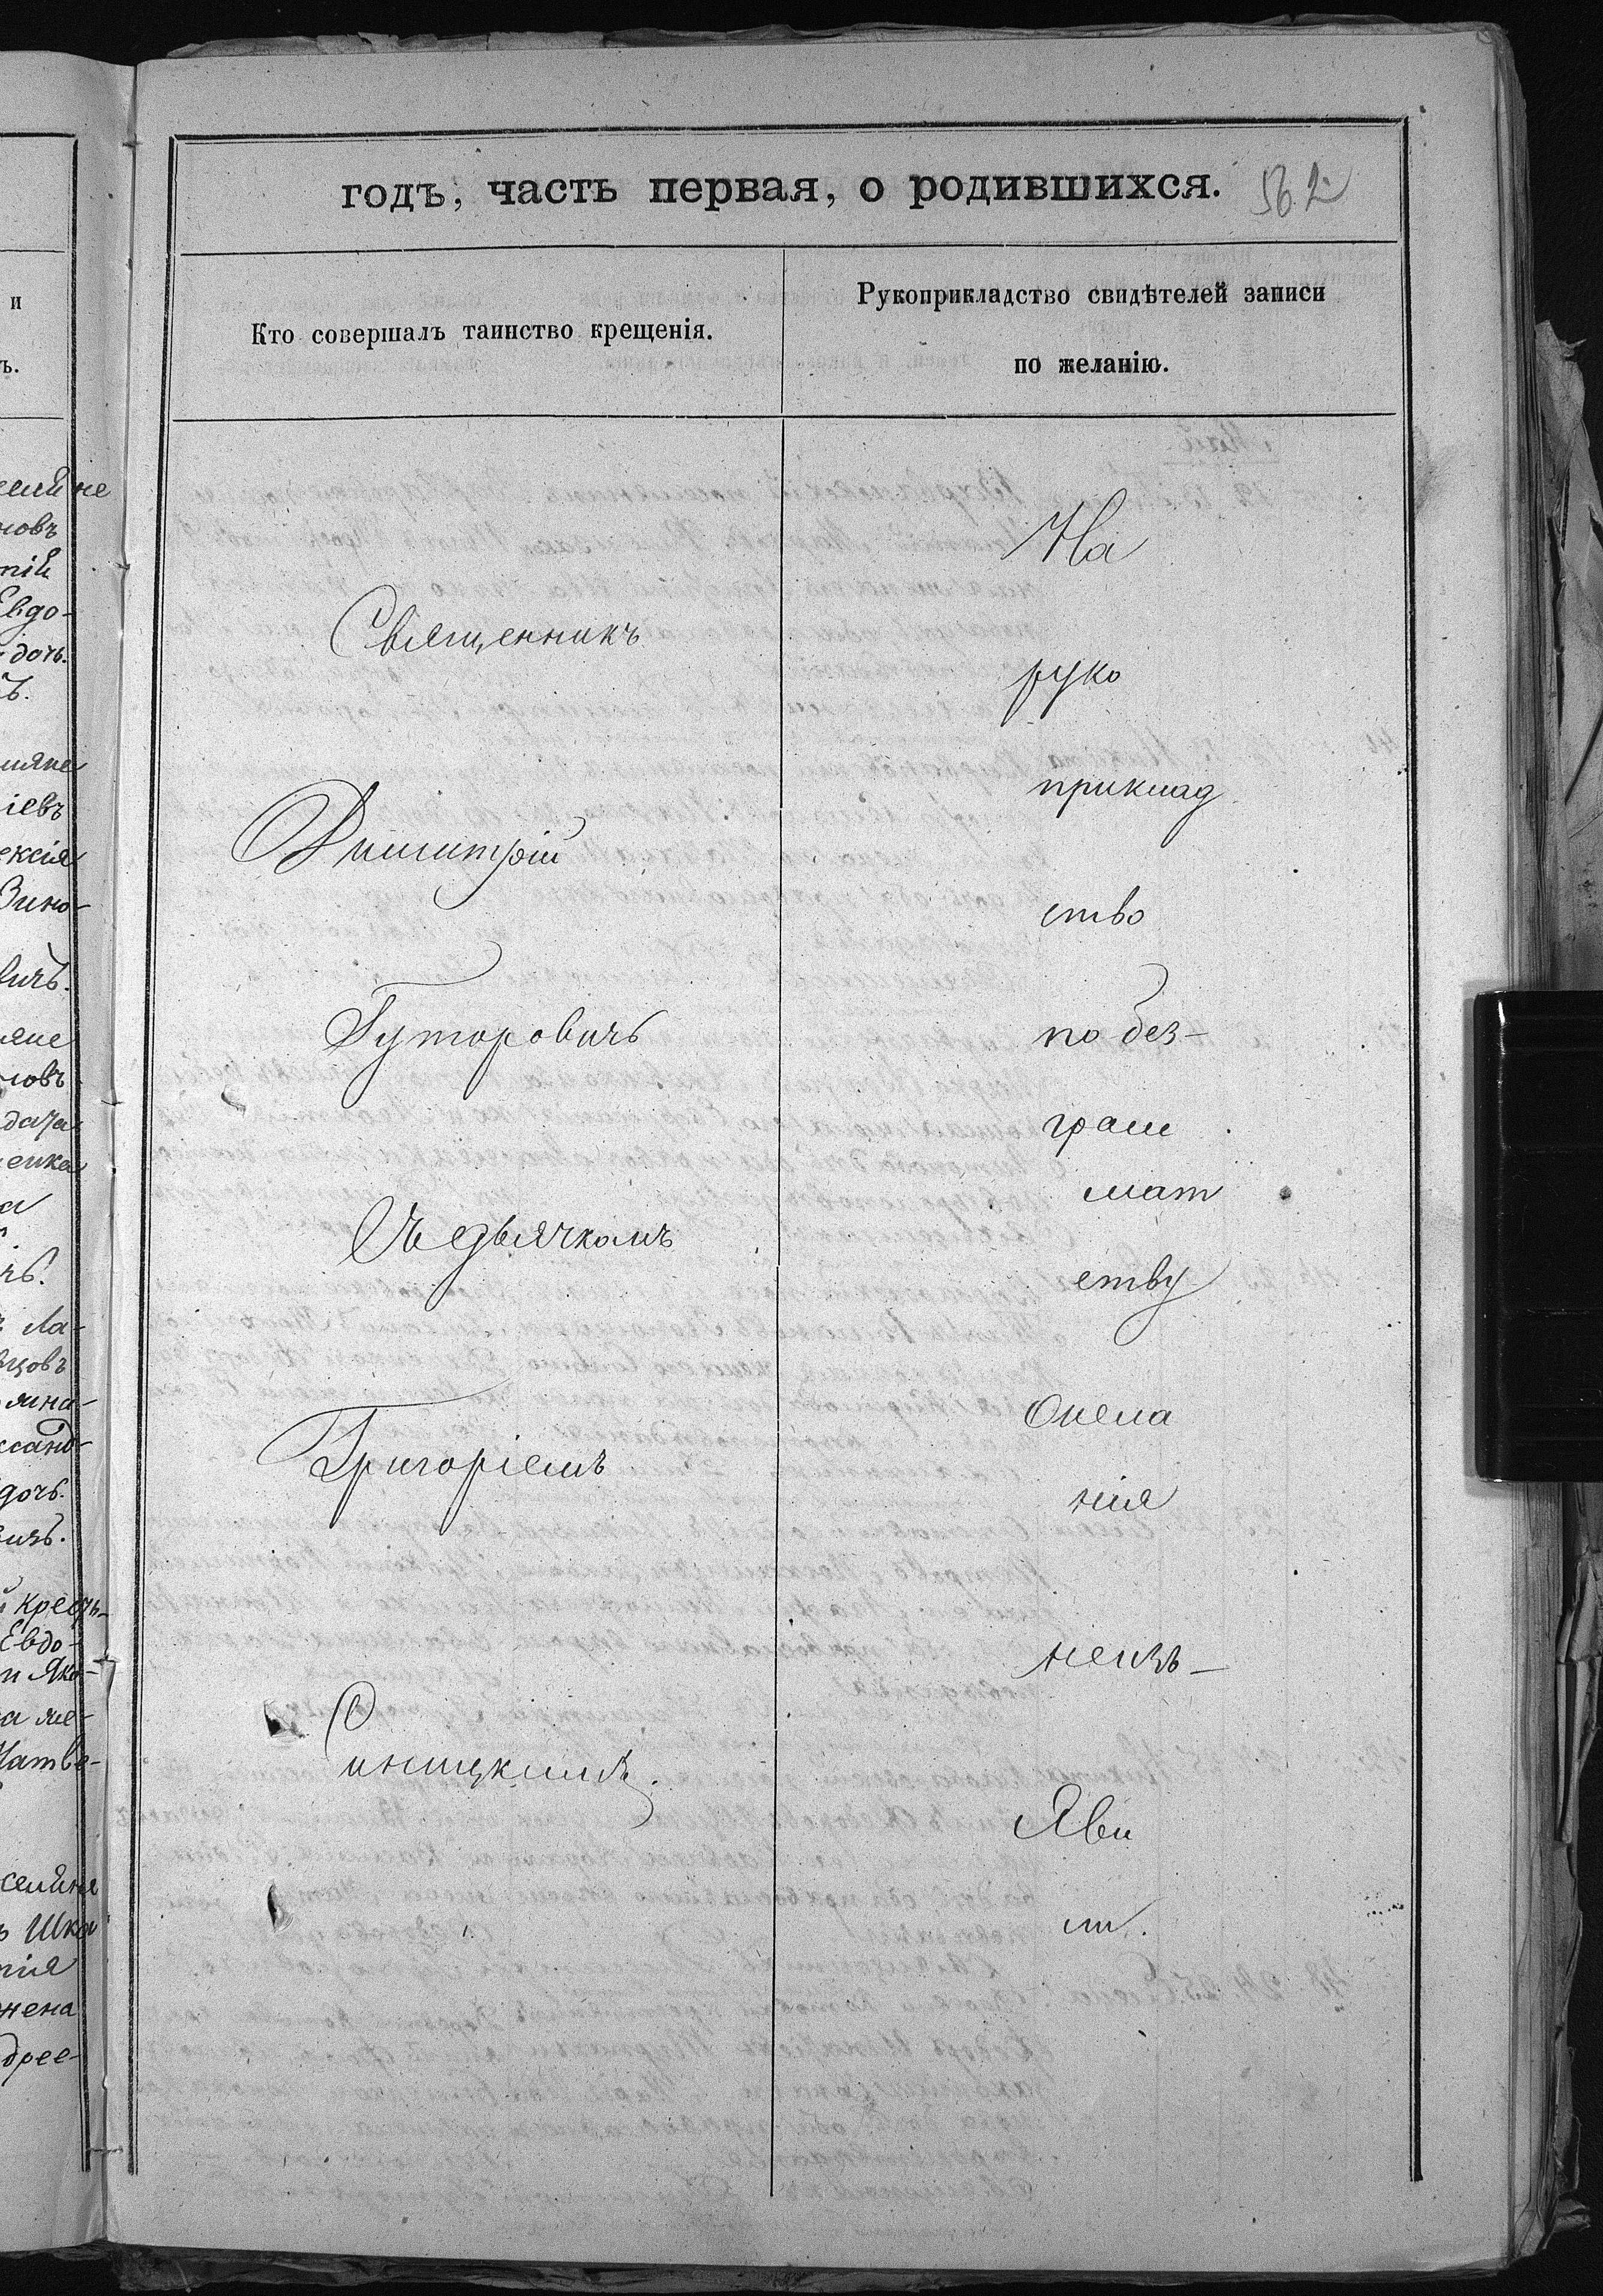 годъ, часть первая, о родившихся. 562
Кто совершалъ таинство крещенія.
Рукоприкладство свидѣтелей записи
по желанію.
Священникъ
Димитрій
Гуторовичъ
Съ дьячкомъ
Григоріемъ
Синицкимъ.
На
руко
приклад
ство
по без-
грам
мат
ству
Онема
нія
неизъ-
Яви
ли.
и
ъ.
новъ
тій
Евдо-
дочь.
ъ.
іевъ
ексія
Зино-
вичъ.
яне
новъ
енка
а
чъ.
Ла-
сандо-
дочь.
вичъ.
крестъ-
Евдо-
Яко-
Матве-
Шка
тія
жена
дрее-